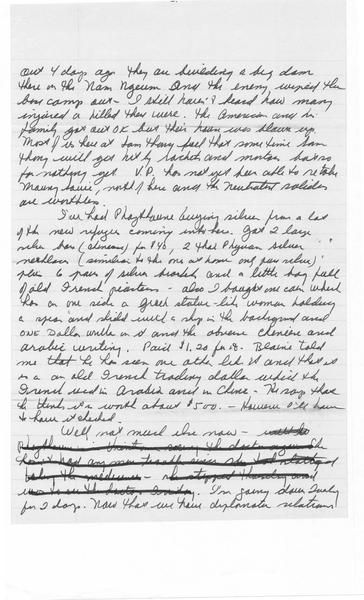 out 4 days ago they are building a big dam
there on the Nam Ngum and the enemy wiped the
base camp out - I still haven't heard how many
injured or killed there were. The American and his
family got out OK but their house was blown up.
Most of us here at Sam Thong feel that some time Sam
Thong will get hit by rockets and mortars but so
far nothing yet. V.P. has not yet been able to retake
Moung Souie, north of here and the Neutralist soldiers
are worthless.
I've had buying silver from a lot
of the new refugees coming into here. Got 2 large
silver bars for $40, 2 silver
necklaces (similar to the one at home only pure silver)
plus 6 pair of silver bracelets and a little bag full
of old French piasters - also I bought one coin which
has on one side a Greek statue like woman holding
a spear and shield with a ship in the background and
ONE Dollar written on it and the obverse Chinese and
arabic writing. Paid $1.20 for it. Blaine told
me that he has seen one other like it and that it
is a an old French trading dollar which the
French used in Arabia and in China. He says that
he thinks it is worth about $500. - However I'll have
to have it checked.
Well, not much else now -
I'm going down Tuesday
for 2 days. Now that we have diplomatic relations